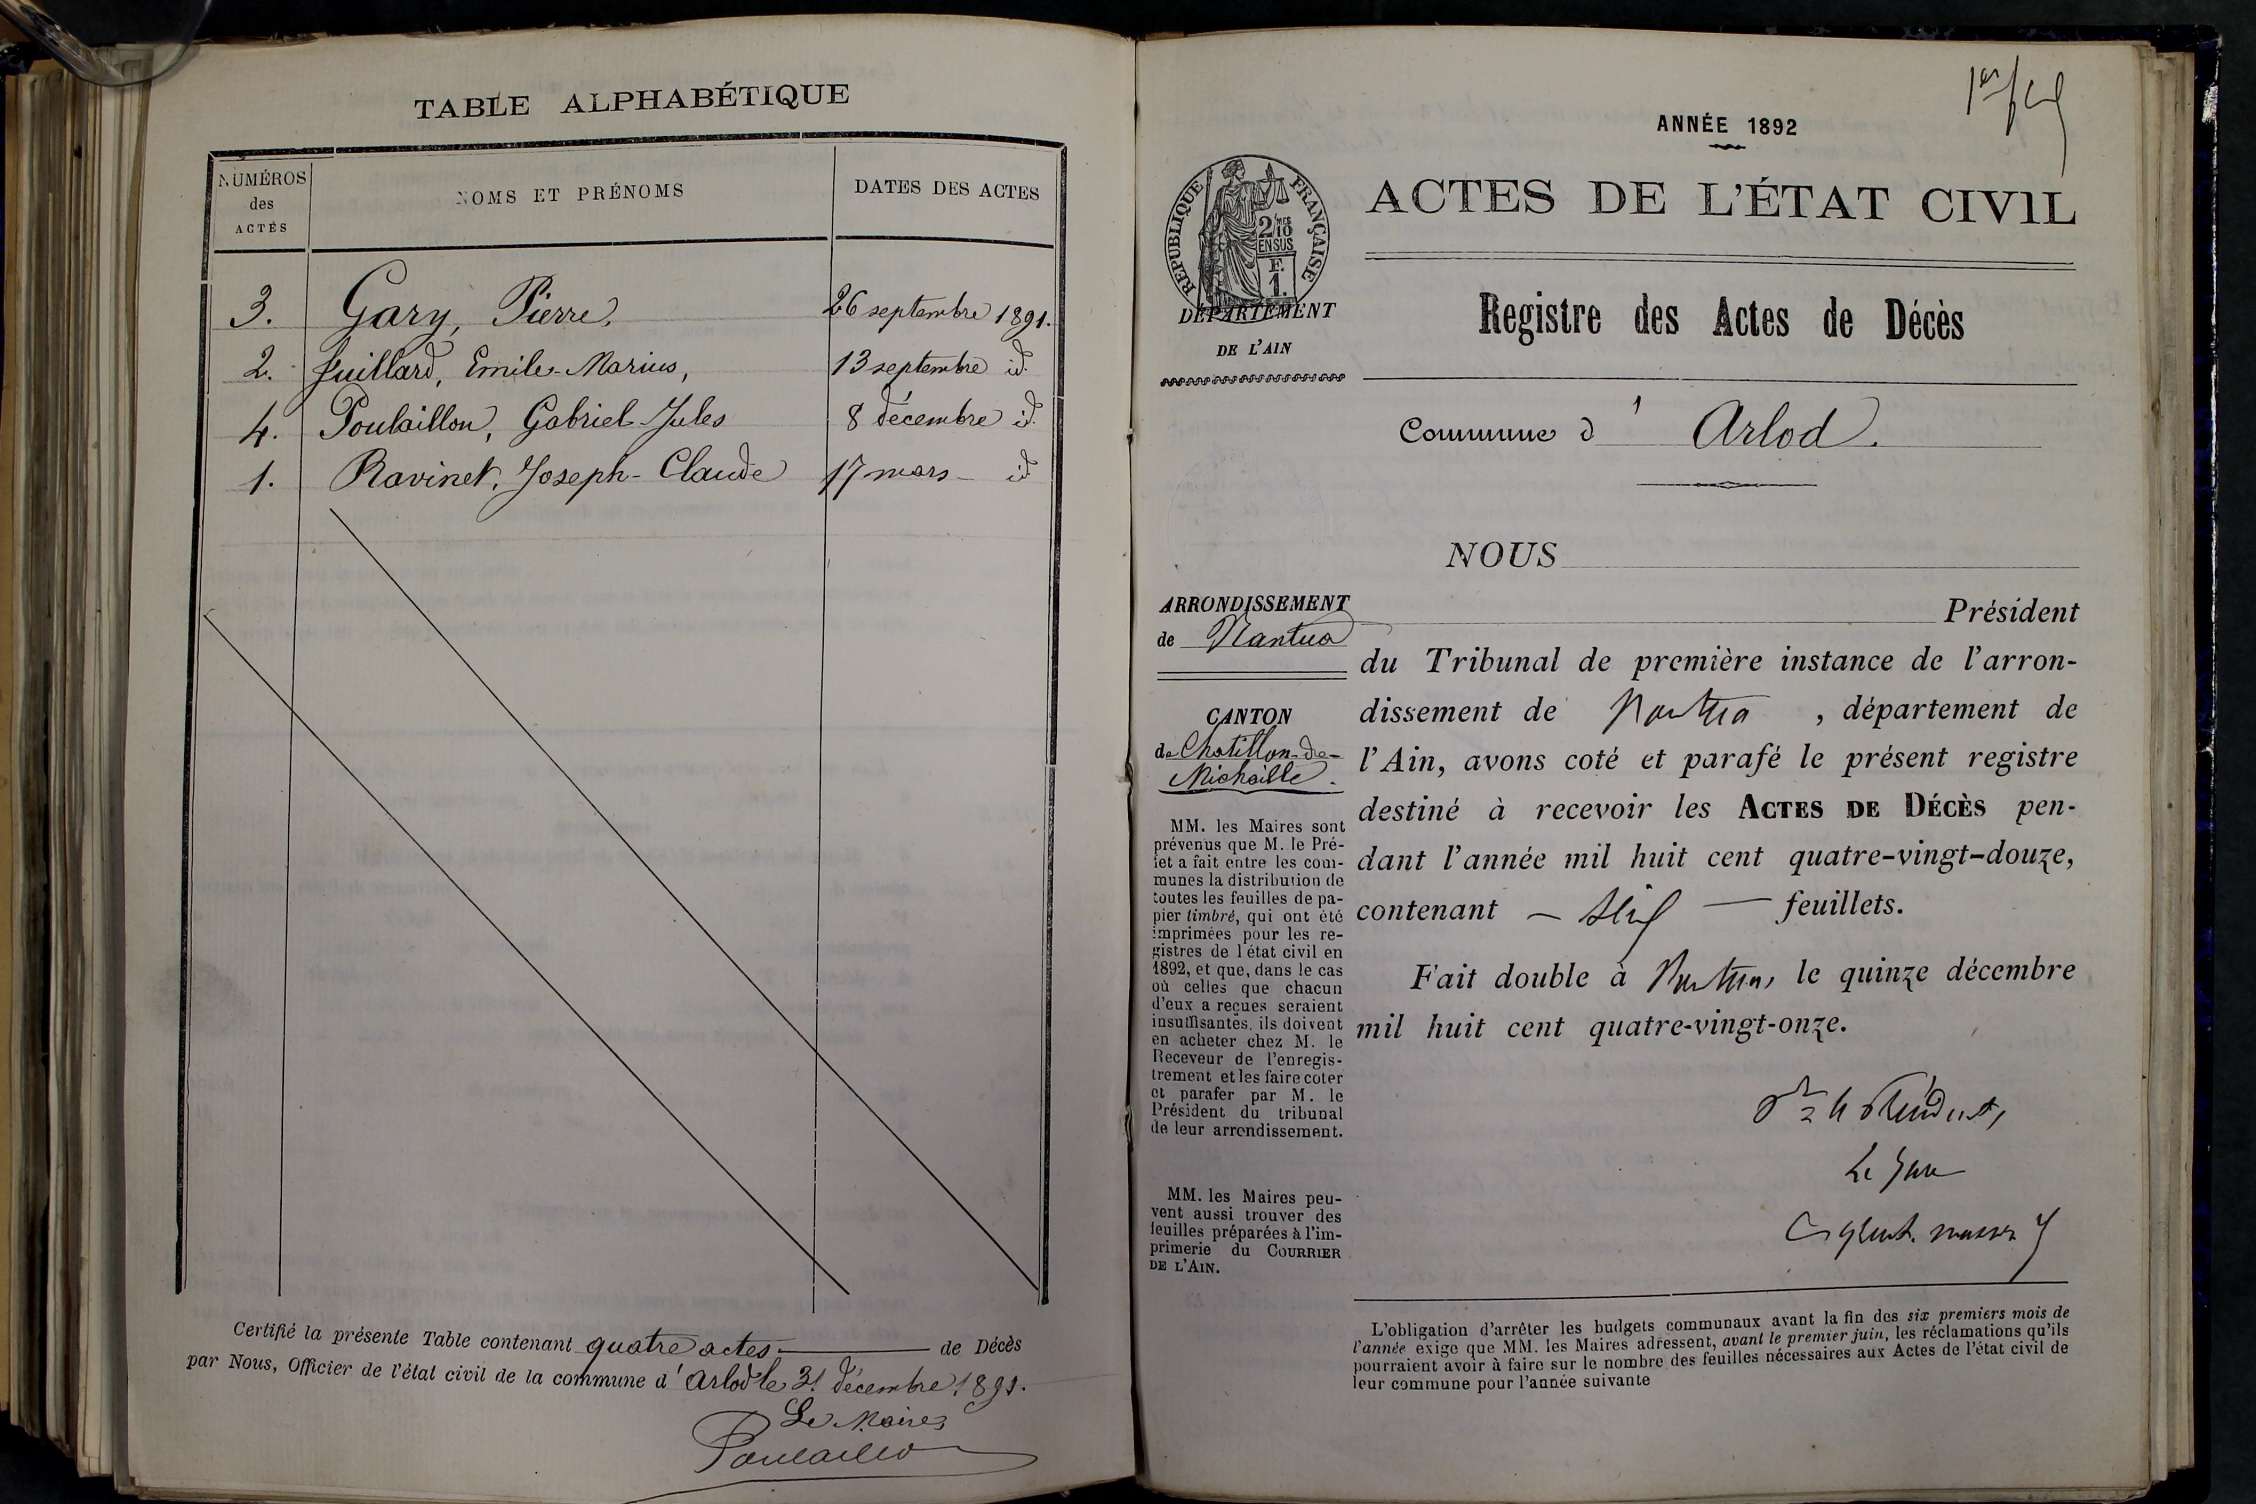 TABLE ALPHABÉTIQUE
NUMÉROS
des
ACTES
NOMS ET PRÉNOMS
DATES DES ACTES
3. Gary, Pierre, 26 septembre 1891.
2. Juillard, Emile-Marius, 13 septembre id.
4. Poulaillon, Gabriel-Jules 8 décembre id.
1. Ravinet, Joseph-Claude 17 mars - id
Certifié la présente Table contenant quatre actes de Décès
par Nous, Officier de l'état civil de la commune d' Arlod le 31 décembre 1891.
Le Maire,
Poulaillon
1er
ANNÉE 1892
RÉPUBLIQUE FRANÇAISE
2/10mes
EN SUS
F.
1.
DÉPARTEMENT
DE L'AIN
ACTES DE L'ÉTAT CIVIL
Registre des Actes de Décès
Commune d' Arlod.
ARRONDISSEMENT
de Nantua
CANTON
de Chatillon-de-
Michaille.
MM. les Maires sont
prévenus que M. le Pré-
fet a fait entre les com-
munes la distribution de
toutes les feuilles de pa-
pier timbré, qui ont été
imprimées pour les re-
gistres de l'état civil en
1892, et que, dans le cas
où celles que chacun
d'eux a reçues seraient
insuffisantes, ils doivent
en acheter chez M. le
Receveur de l'enregis-
trement et les faire coter
et parafer par M. le
Président du tribunal
de leur arrondissement.
MM. les Maires peu-
vent aussi trouver des
feuilles préparées à l'im-
primerie du COURRIER
DE L'AIN.
NOUS
Président
du Tribunal de première instance de l'arron-
dissement de Nantua , département de
l'Ain, avons coté et parafé le présent registre
destiné à recevoir les ACTES DE DÉCÈS pen-
dant l'année mil huit cent quatre-vingt-douze,
contenant — — feuillets.
Fait double à Nantua, le quinze décembre
mil huit cent quatre-vingt-onze.
Le Juge
L'obligation d'arrêter les budgets communaux avant la fin des six premiers mois de
l'année exige que MM. les Maires adressent, avant le premier juin, les réclamations qu'ils
pourraient avoir à faire sur le nombre des feuilles nécessaires aux Actes de l'état civil de
leur commune pour l'année suivante